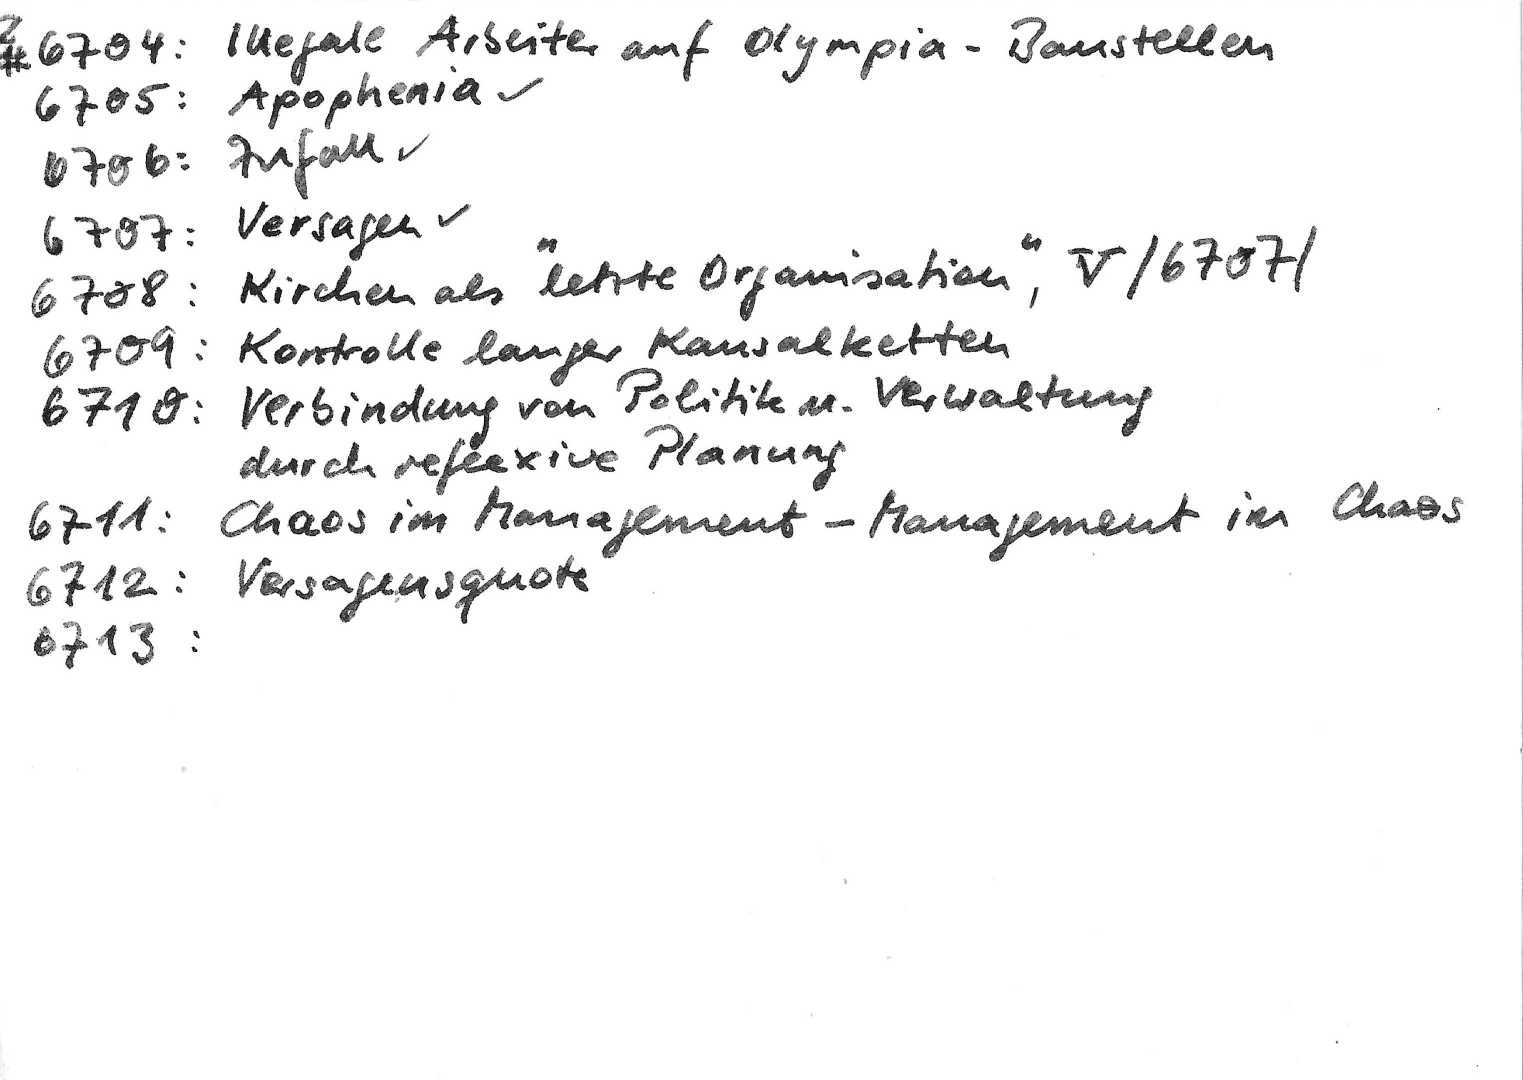 2
# 6704: Illegale Arbeiter auf Olympia-Baustellen
6705: Apophenia ✓
6706: Zufall ✓
6707: Versagen ✓
6708: Kirchen als "letzte Organisation", V /6707/
6709: Kontrolle langer Kausalketten
6710: Verbindung von Politik u. Verwaltung
durch reflexive Planung
6711: Chaos im Management – Management im Chaos
6712: Versagensquote
6713: